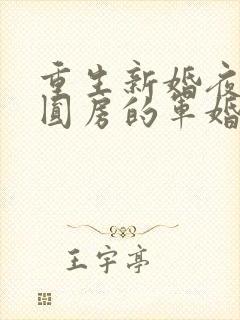 重生新婚夜
圆房的军婚
王宇亭